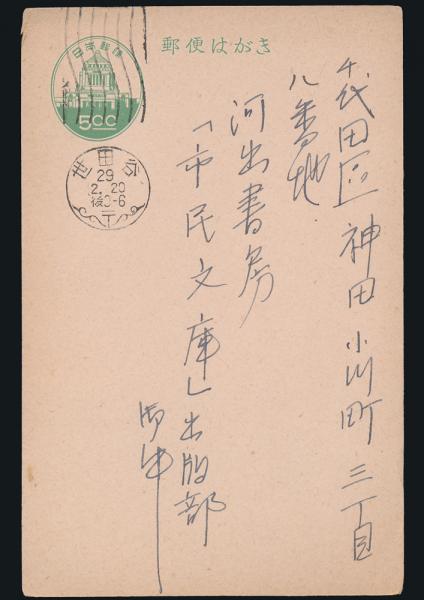 郵便はがき
日本郵便
5.00
世田谷
29
2.20
後0-6
〒
千代田区神田小川町三丁目
八番地
河出書房
「市民文庫」出版部
御中